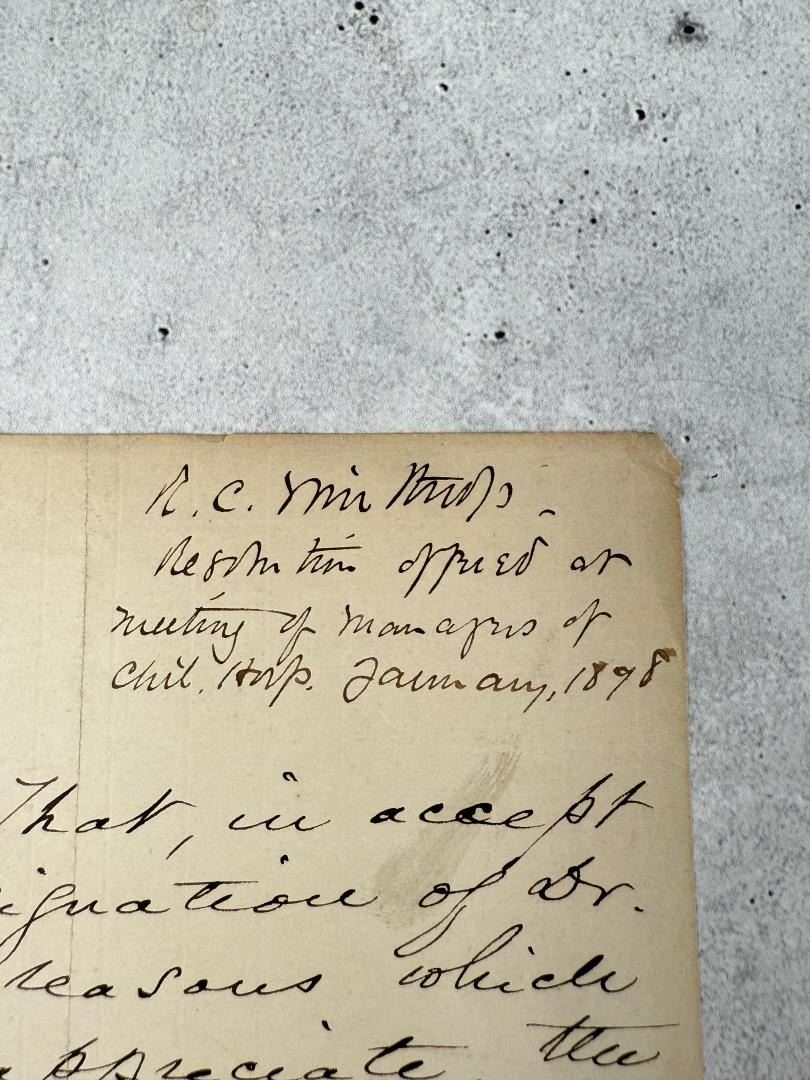 R. C. Winthrop –
Resolution offered at
meeting of managers of
Chil. Hosp. January, 1898
That, in accept
ignation of Dr.
reasons which
appreciate, the